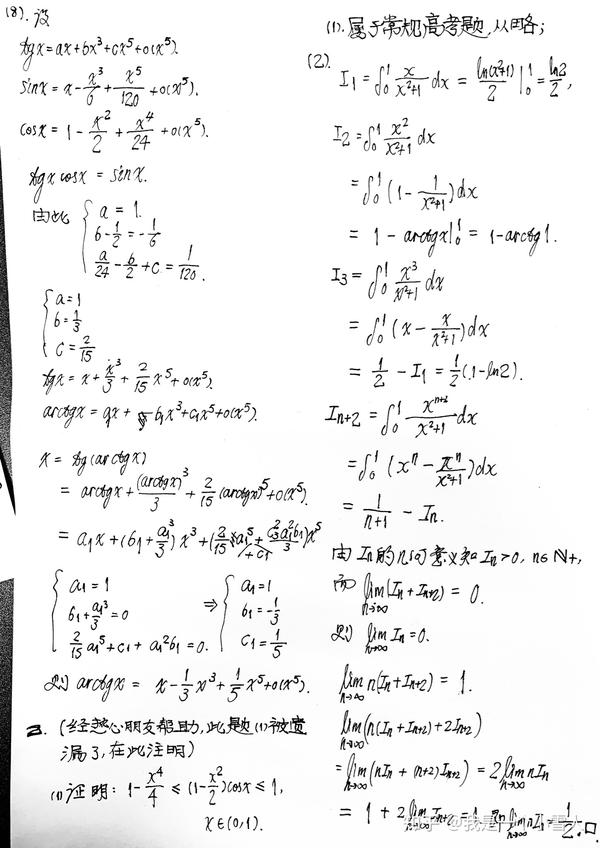 (8). 设
tgx=ax+bx³+cx⁵+o(x⁵).
sinx = x-x³/6+x⁵/120+o(x⁵).
cosx = 1-x²/2+x⁴/24+o(x⁵).
tgx cosx = sinx.
由此 { a = 1.
b-1/2=-1/6
a/24-b/2+c=1/120.
{ a=1
b=1/3
c=2/15
tgx = x+x³/3+2/15x⁵+o(x⁵).
arctgx = a₁x+b₁x³+c₁x⁵+o(x⁵).
x = tg(arctgx)
= arctgx+(arctgx)³/3+2/15(arctgx)⁵+o(x⁵).
= a₁x+(b₁+a₁³/3)x³+(2/15a₁⁵+c₁+3a₁²b₁/3)x⁵
{ a₁=1
b₁+a₁³/3=0
2/15a₁⁵+c₁+a₁²b₁=0.
⇒ { a₁=1
b₁=-1/3
c₁=1/5
则 arctgx = x-1/3x³+1/5x⁵+o(x⁵).
2. (经热心朋友帮助,此题(1)被遗
漏了,在此注明)
(1) 证明: 1-x⁴/4 ≤ (1-x²/2)cosx ≤ 1,
x∈(0,1).
(1). 属于常规高考题,从略;
(2).
I₁ = ∫₀¹ x/(x²+1) dx = ln(x²+1)/2 |₀¹ = ln2/2,
I₂ = ∫₀¹ x²/(x²+1) dx
= ∫₀¹ (1-1/(x²+1))dx
= 1-arctgx|₀¹ = 1-arctg1.
I₃ = ∫₀¹ x³/(x²+1) dx
= ∫₀¹ (x-x/(x²+1))dx
= 1/2-I₁ = 1/2(1-ln2).
Iₙ₊₂ = ∫₀¹ xⁿ⁺²/(x²+1) dx
= ∫₀¹ (xⁿ-xⁿ/(x²+1))dx
= 1/(n+1) - Iₙ.
由Iₙ的几何意义知Iₙ>0, n∈N+,
而 lim n→∞ (Iₙ+Iₙ₊₂) = 0.
则 lim n→∞ Iₙ=0.
lim n→∞ n(Iₙ+Iₙ₊₂) = 1.
lim n→∞ (n(Iₙ+Iₙ₊₂)+2Iₙ₊₂)
= lim n→∞ (nIₙ+(n+2)Iₙ₊₂) = 2 lim n→∞ nIₙ
= 1+2 lim n→∞ Iₙ₊₂=1. 即 lim n→∞ nIₙ=1/2. □